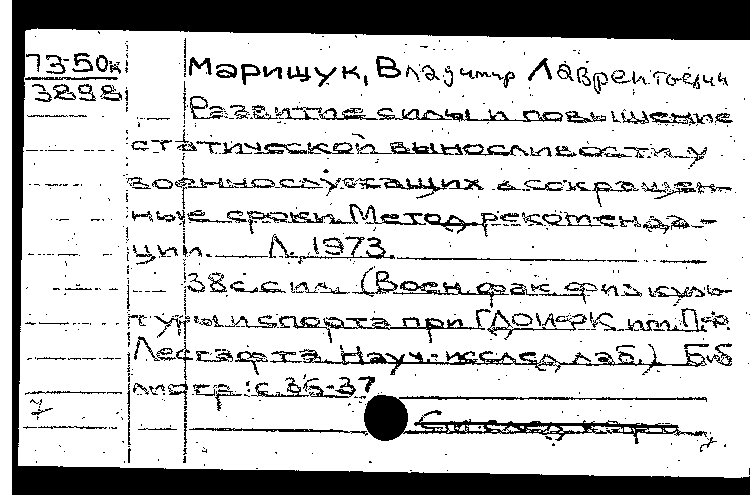 73-50к
3898
Марищук, Владимир Лаврентьевич
Развитие силы и повышение
статической выносливости у
военнослужащих в сокращен-
ные сроки. Метод. рекоменда-
ции. Л., 1973.
38 с. с ил. (Воен. фак. физ. куль-
туры и спорта при ГДОИФК им. П.Ф.
Лесгафта. Науч.-исслед. лаб.) Биб
лиогр.: с. 36-37
7
См. след. карт